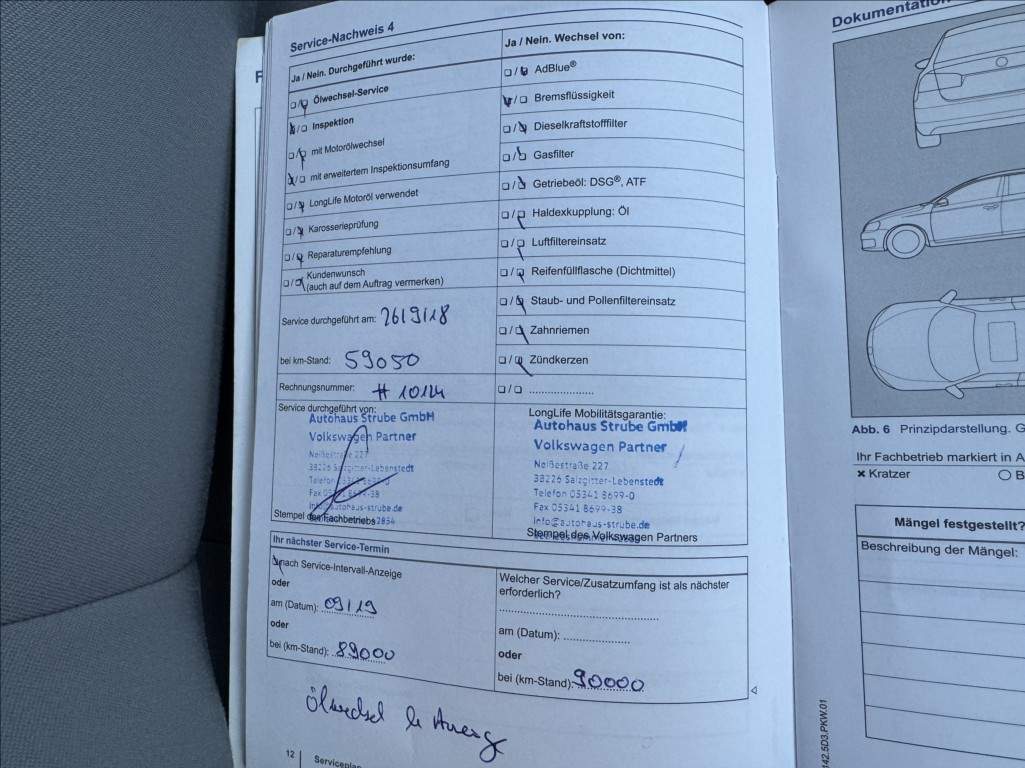 Service-Nachweis 4
Ja / Nein. Durchgeführt wurde:
Ölwechsel-Service
Inspektion
mit Motorölwechsel
mit erweitertem Inspektionsumfang
LongLife Motoröl verwendet
Karosserieprüfung
Reparaturempfehlung
Kundenwunsch
(auch auf dem Auftrag vermerken)
Service durchgeführt am: 26/9/18
bei km-Stand: 59050
Rechnungsnummer: # 10124
Ja / Nein. Wechsel von:
AdBlue®
Bremsflüssigkeit
Dieselkraftstofffilter
Gasfilter
Getriebeöl: DSG®, ATF
Haldexkupplung: Öl
Luftfiltereinsatz
Reifenfüllflasche (Dichtmittel)
Staub- und Pollenfiltereinsatz
Zahnriemen
Zündkerzen
Service durchgeführt von:
Autohaus Strube GmbH
Volkswagen Partner
Neißestraße 227
38226 Salzgitter-Lebenstedt
Telefon 05341 8699-0
Fax 05341 8699-38
info@autohaus-strube.de
Stempel des Fachbetriebs
LongLife Mobilitätsgarantie:
Autohaus Strube GmbH
Volkswagen Partner
Neißestraße 227
38226 Salzgitter-Lebenstedt
Telefon 05341 8699-0
Fax 05341 8699-38
info@autohaus-strube.de
Stempel des Volkswagen Partners
Ihr nächster Service-Termin
nach Service-Intervall-Anzeige
oder
am (Datum): 09/19
oder
bei (km-Stand): 89000
Welcher Service/Zusatzumfang ist als nächster
erforderlich?
am (Datum):
oder
bei (km-Stand): 90000
Ölwechsel
12 Serviceplan
Dokumentation
Abb. 6 Prinzipdarstellung. G
Ihr Fachbetrieb markiert in A
× Kratzer
B
Mängel festgestellt?
Beschreibung der Mängel:
142.5D3.PKW.01